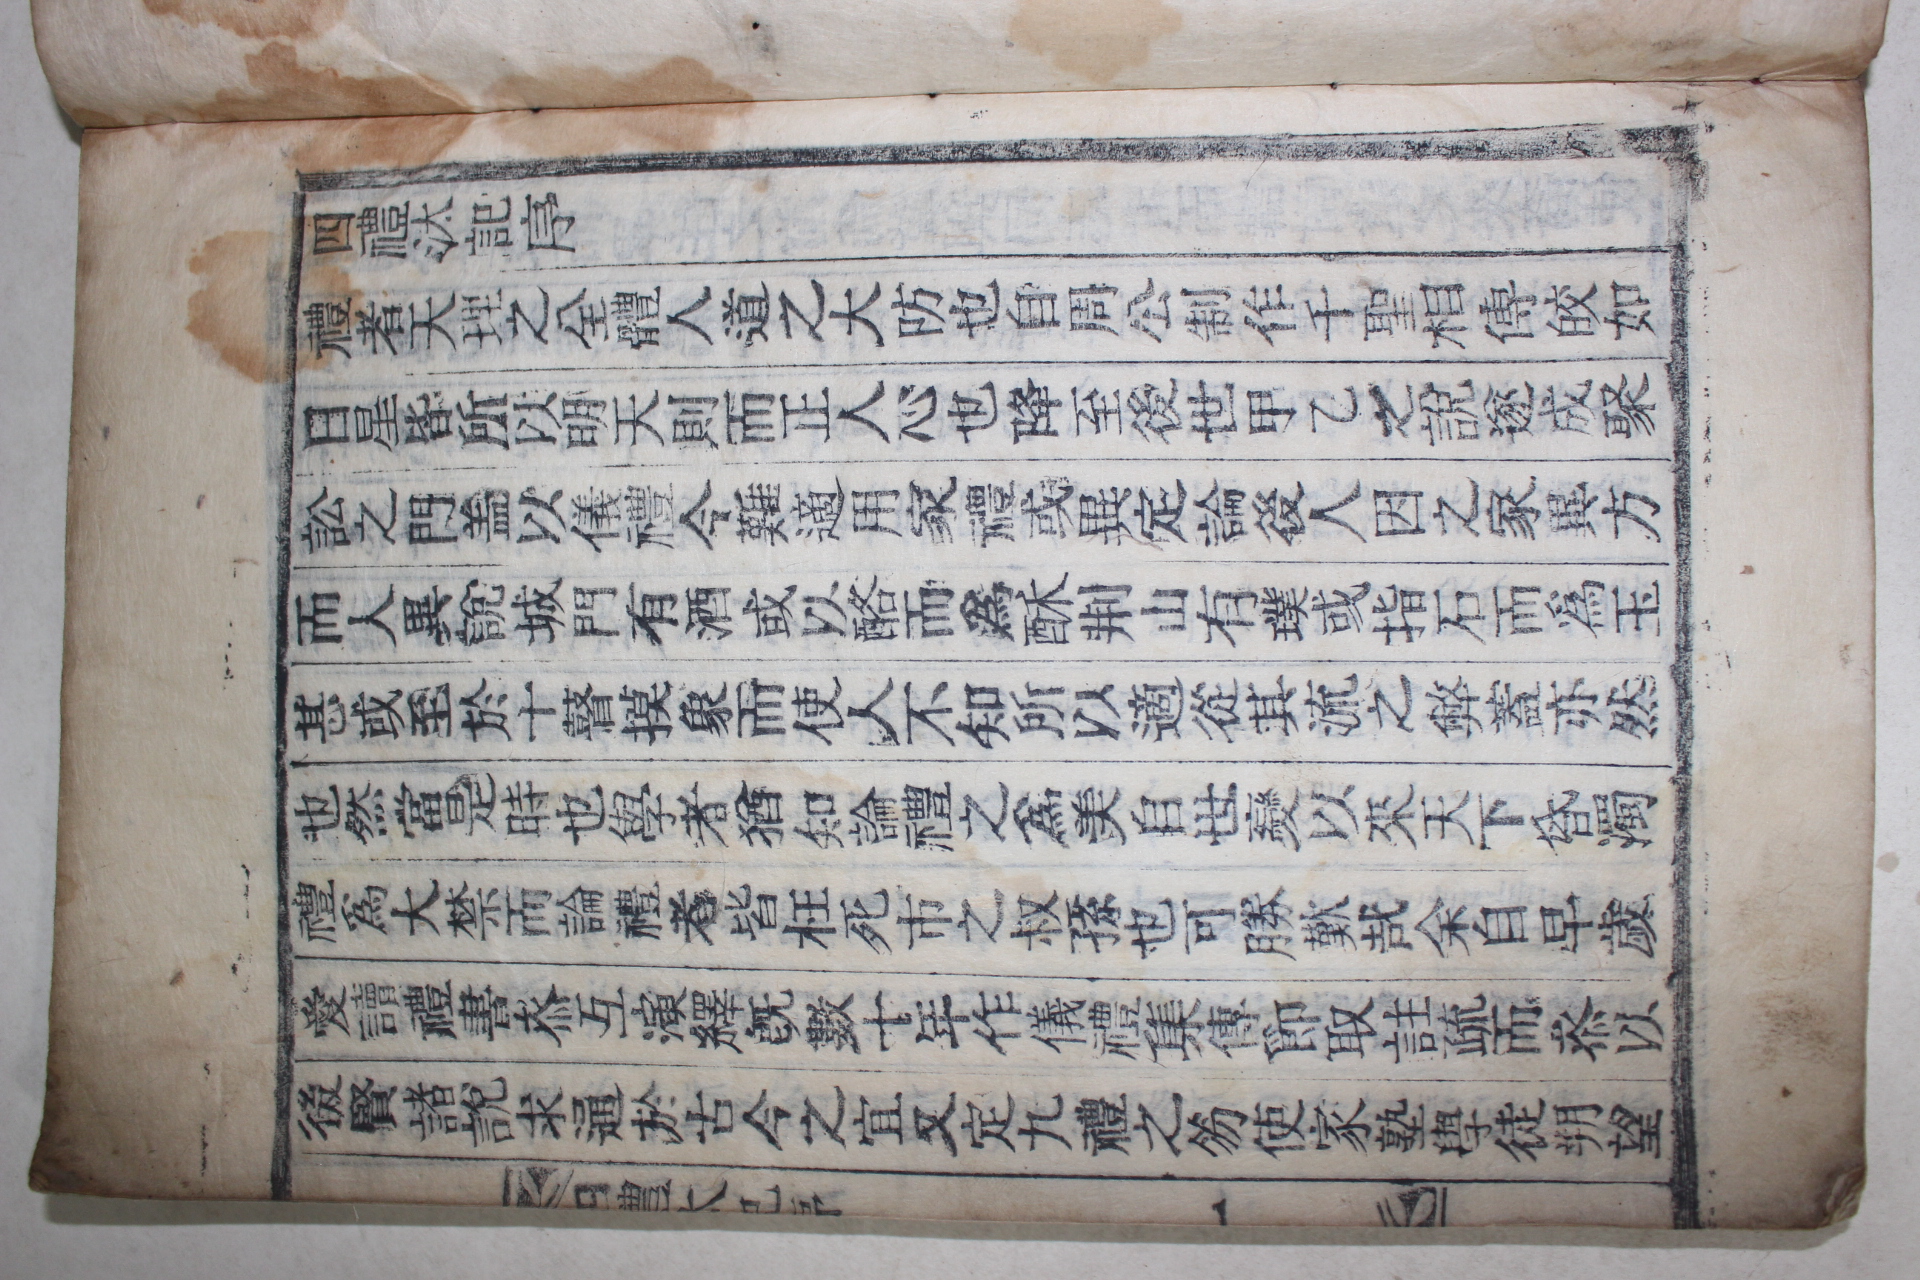 四禮汰記序
禮者天理之全體人道之大防也自周公制作千聖相傳皎如
日星皆所以明天則而正人心也降至後世甲乙之說遂成聚
訟之門盖以儀禮今難適用家禮或異定論後人因之家異方
而人異說城門有酒或以酪而爲酥荆山有璞或指石而爲玉
甚或至於十瞽摸象而使人不知所以適從其流之弊蓋亦然
也然當是時也學者猶知論禮之爲美自世發以來天下昏濁
禮爲大禁而論禮者皆枉死市之叔孫也可勝歎哉余自早歲
愛讀禮書叅互演繹旣數十年作儀禮集傳節取註疏而叅以
後賢諸說求通於古今之宜又定九禮之笏使家塾學徒朔望
四禮汰記序 一